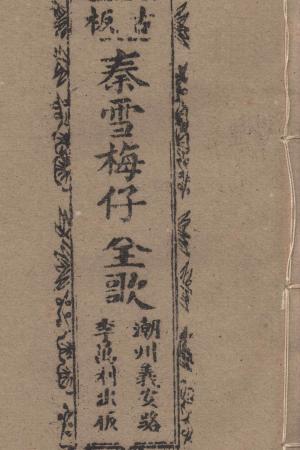 古板
秦雪梅仔全歌
潮州義安路
李萬利出版